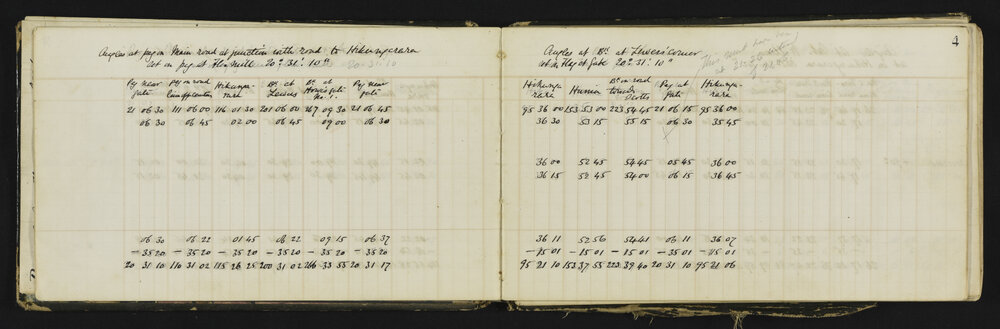 Angles at peg on Main road at junction with road to Hikurangi
at peg at Flax mill 20° 31' 10"
Peg near Peg on road Bk. at Bk. at Peg near
gate Lewis gate
21 06 30 111 06 00 116 01 30 201 06 00 267 09 30 21 06 45
06 30 06 45 02 00 06 45 09 00 06 30
06 30 06 22 01 45 06 22 09 15 06 37
– 35 20 – 35 20 – 35 20 – 35 20 – 35 20 – 35 20
20 31 10 110 31 02 115 26 25 200 31 02 266 33 55 20 31 17
4
Angles at Bk. at Lewis' corner
at Peg at Gate 20° 31' 10"
This must have been
at
Bk on road Peg at
towards gate
Scotts
95 36 00 153 53 00 223 54 45 21 06 15 95 36 00
36 30 53 15 55 15 06 30 35 45
36 00 52 45 54 45 05 45 36 00
36 15 52 45 54 00 06 15 36 45
36 11 52 56 54 41 06 11 36 07
– 15 01 – 15 01 – 15 01 – 35 01 – 15 01
95 21 10 153 37 55 223 39 40 20 31 10 95 21 06